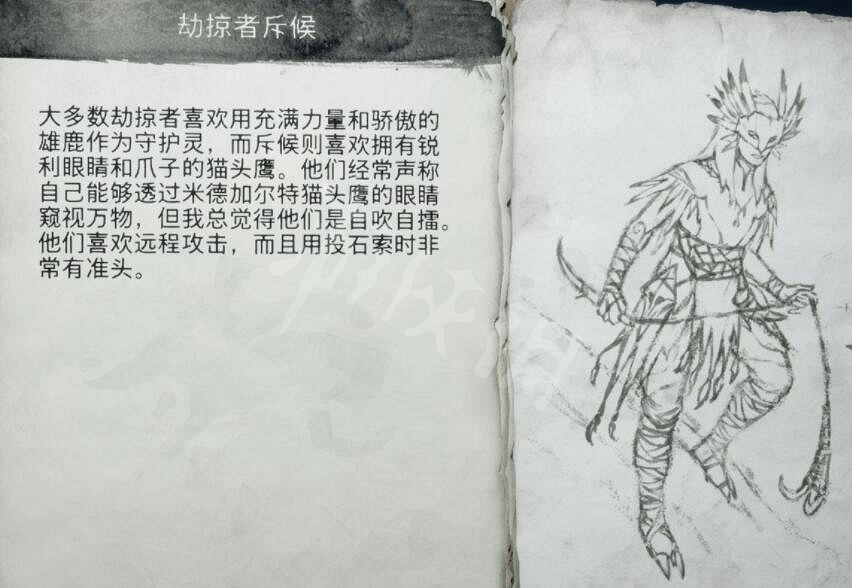 劫掠者斥候
大多数劫掠者喜欢用充满力量和骄傲的
雄鹿作为守护灵，而斥候则喜欢拥有锐
利眼睛和爪子的猫头鹰。他们经常声称
自己能够透过米德加尔特猫头鹰的眼睛
窥视万物，但我总觉得他们是自吹自擂。
他们喜欢远程攻击，而且用投石索时非
常有准头。